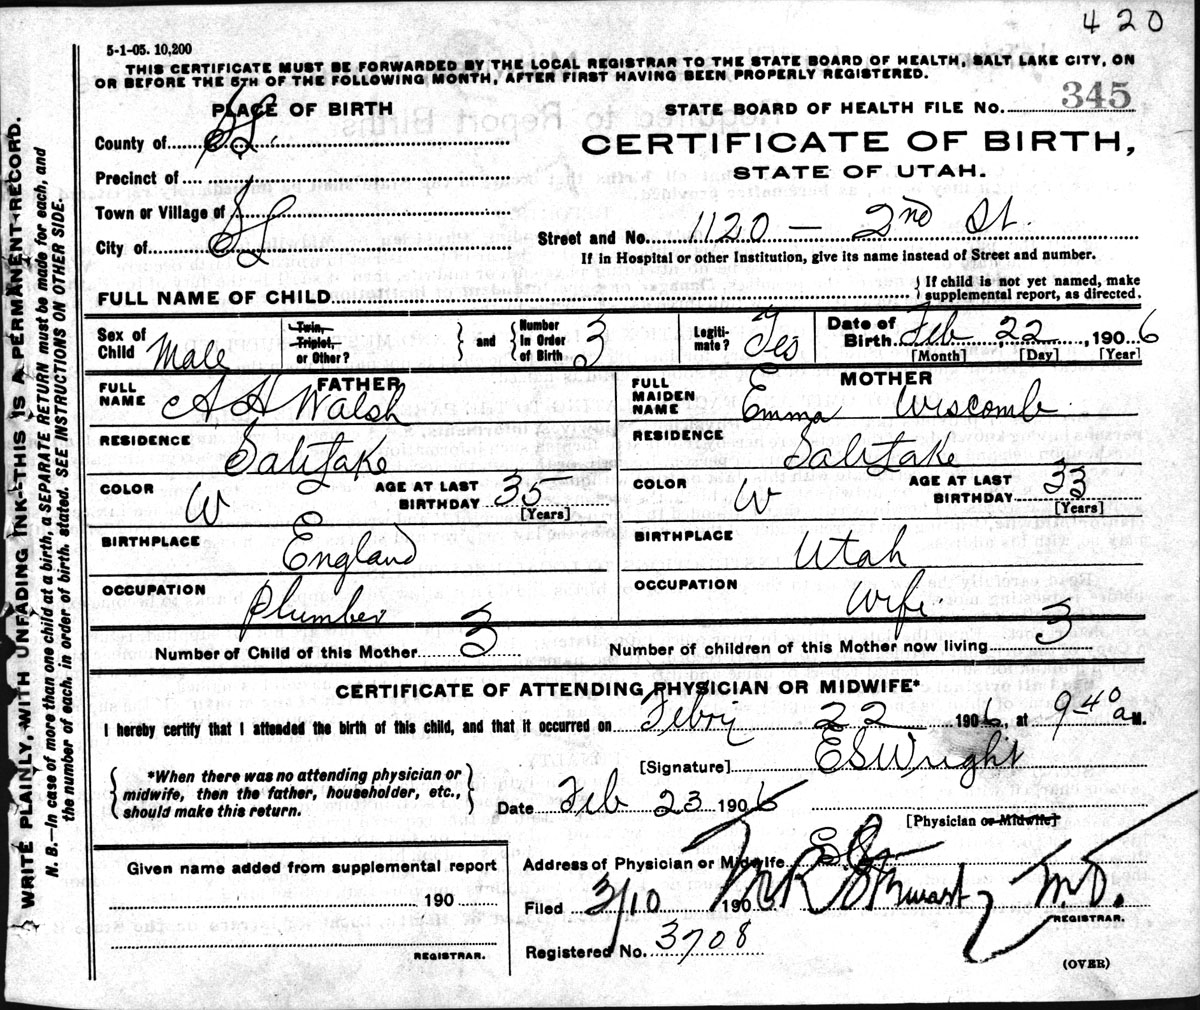 420
5-1-05. 10,200
THIS CERTIFICATE MUST BE FORWARDED BY THE LOCAL REGISTRAR TO THE STATE BOARD OF HEALTH, SALT LAKE CITY, ON
OR BEFORE THE 5TH OF THE FOLLOWING MONTH, AFTER FIRST HAVING BEEN PROPERLY REGISTERED.
PLACE OF BIRTH
STATE BOARD OF HEALTH FILE No. 345
County of SL
CERTIFICATE OF BIRTH,
STATE OF UTAH.
Precinct of
Town or Village of
City of SL
Street and No. 1120 — 2nd St.
If in Hospital or other Institution, give its name instead of Street and number.
FULL NAME OF CHILD
{ If child is not yet named, make
supplemental report, as directed.
Sex of Child Male
Twin, Triplet, or Other?
} and { Number in Order of Birth 3
Legiti-mate? Yes
Date of Birth Feb 22, 1906
[Month] [Day] [Year]
FATHER
FULL NAME A H Walsh
MOTHER
FULL MAIDEN NAME Emma Wiscomb
RESIDENCE Salt Lake
RESIDENCE Salt Lake
COLOR W
AGE AT LAST BIRTHDAY 35
[Years]
COLOR W
AGE AT LAST BIRTHDAY 33
[Years]
BIRTHPLACE England
BIRTHPLACE Utah
OCCUPATION Plumber
OCCUPATION Wife
Number of Child of this Mother 3
Number of children of this Mother now living 3
CERTIFICATE OF ATTENDING PHYSICIAN OR MIDWIFE*
I hereby certify that I attended the birth of this child, and that it occurred on Febry 22 1906, at 9-40 a M.
[Signature] E S Wright
{ *When there was no attending physician or
midwife, then the father, householder, etc.,
should make this return. }
Date Feb 23 1906
[Physician or Midwife]
Given name added from supplemental report
190
REGISTRAR.
Address of Physician or Midwife
Filed 3/10 1906 M.D.
REGISTRAR.
Registered No. 3708
(OVER)
WRITE PLAINLY, WITH UNFADING INK—THIS IS A PERMANENT RECORD.
N. B.—In case of more than one child at a birth, a SEPARATE RETURN must be made for each, and
the number of each, in order of birth, stated. SEE INSTRUCTIONS ON OTHER SIDE.